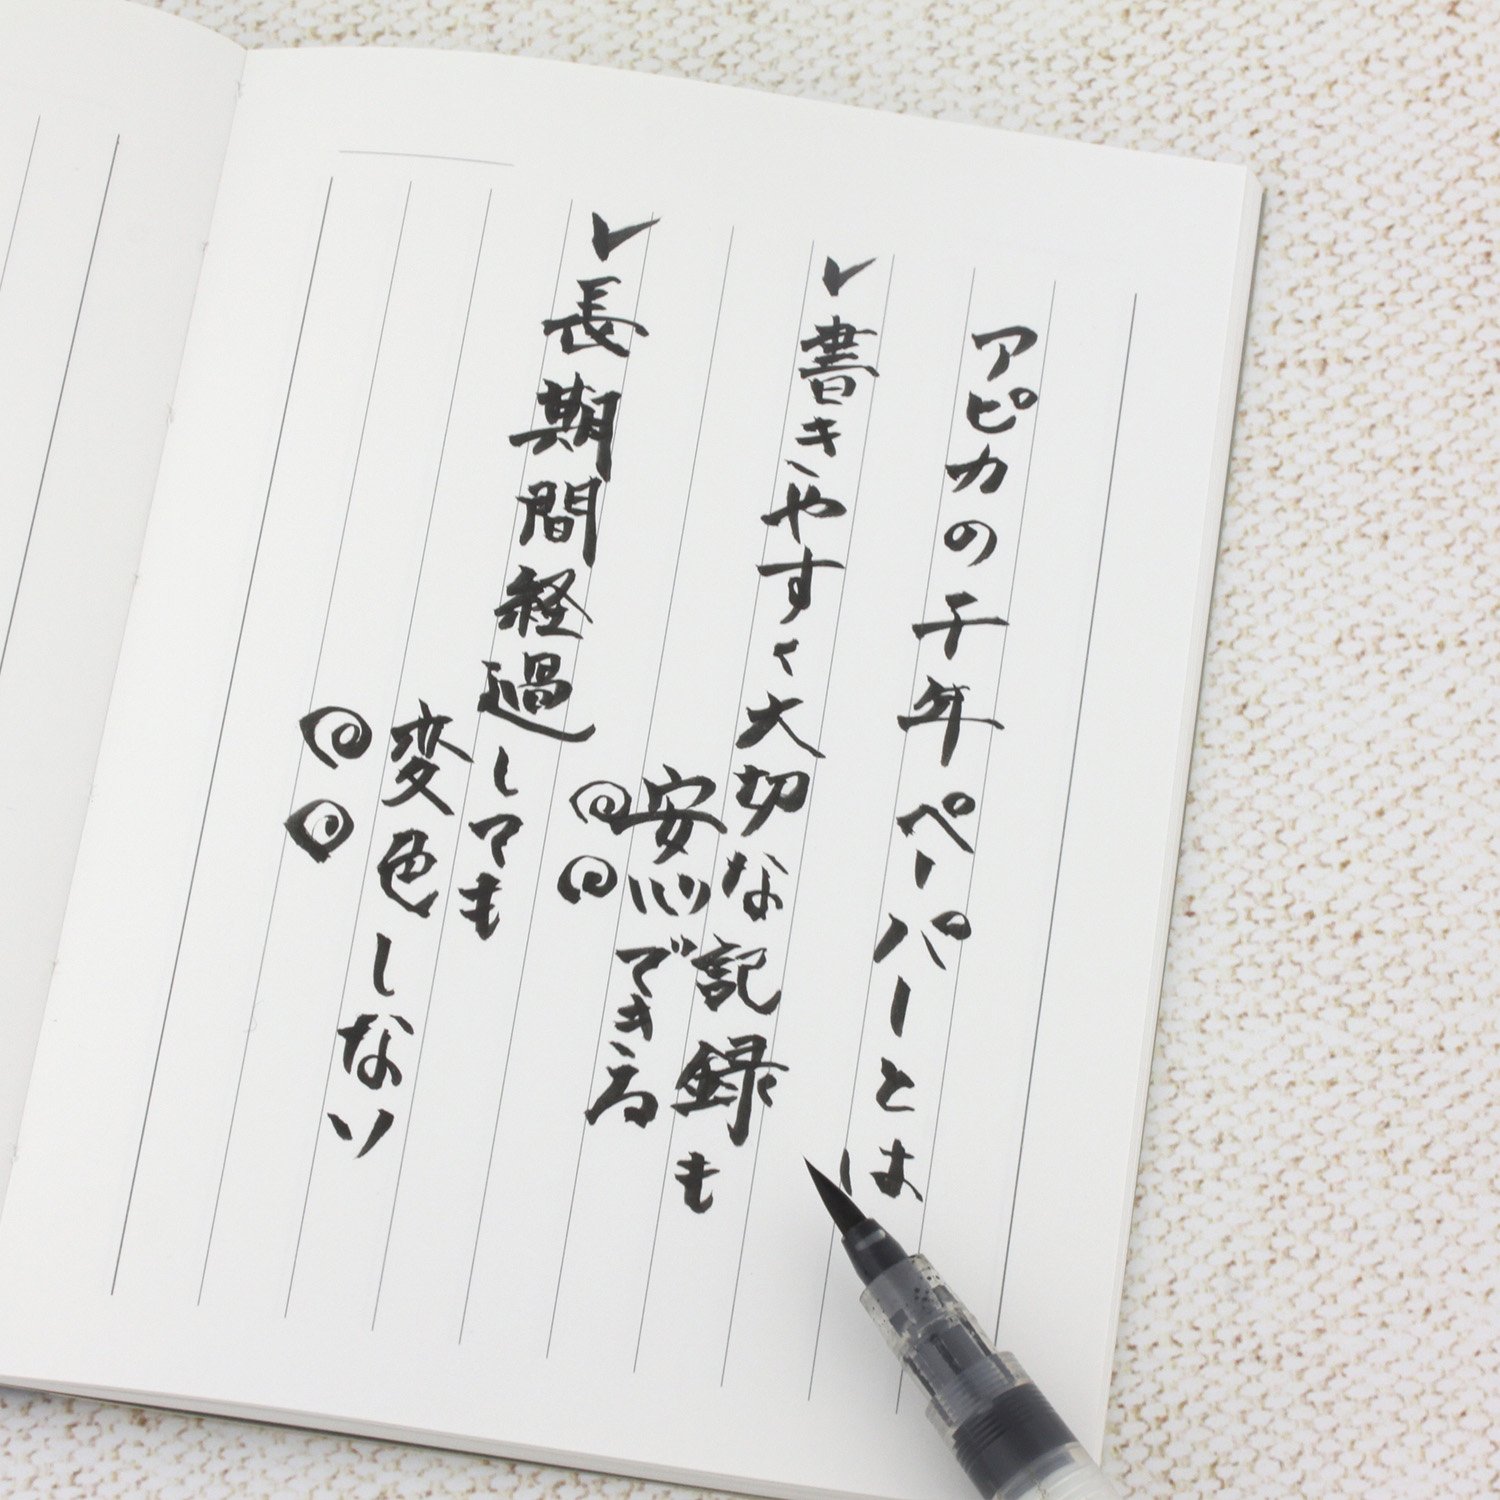 アピカの千年ペーパーとは
✓書きやすく大切な記録も
安心できる◎◎
✓長期間経過しても
変色しない
◎◎